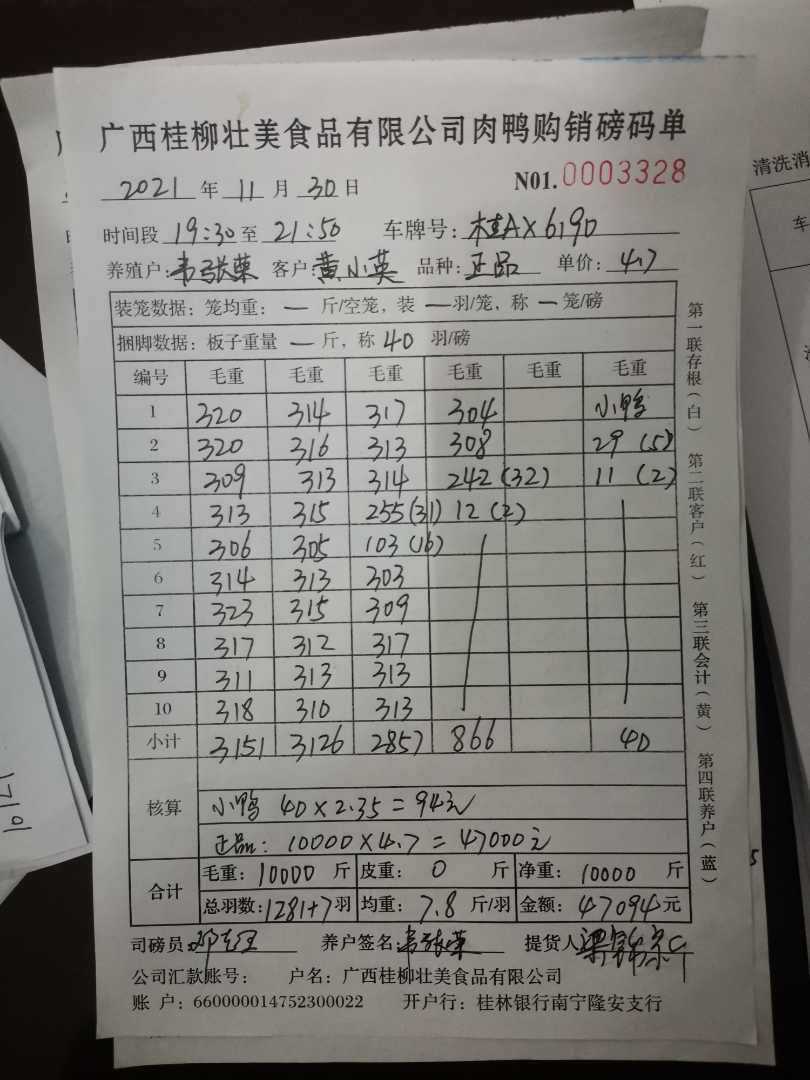 广西桂柳壮美食品有限公司肉鸭购销磅码单
2021 年 11 月 30 日 N01. 0003328
时间段 19:30 至 21:50 车牌号: 桂AX619D
养殖户: 韦张荣 客户: 黄小英 品种: 正品 单价: 4.7
装笼数据: 笼均重: — 斤/空笼, 装 — 羽/笼, 称 — 笼/磅
捆脚数据: 板子重量 — 斤, 称 40 羽/磅
编号 毛重 毛重 毛重 毛重 毛重 毛重
1 320 314 317 304 小鸭
2 320 316 313 308 29 (5)
3 309 313 314 242 (32) 11 (2)
4 313 315 255 (31) 12 (2)
5 306 305 103 (16)
6 314 313 303
7 323 315 309
8 317 312 317
9 311 313 313
10 318 310 313
小计 3151 3126 2857 866 40
核算 小鸭 40 × 2.35 = 94元
正品: 10000 × 4.7 = 47000元
合计 毛重: 10000 斤 皮重: 0 斤 净重: 10000 斤
总羽数: 1281+7 羽 均重: 7.8 斤/羽 金额: 47094 元
司磅员: 养户签名: 韦张荣 提货人
公司汇款账号: 户名: 广西桂柳壮美食品有限公司
账 户: 660000014752300022 开户行: 桂林银行南宁隆安支行
第一联存根(白) 第二联客户(红) 第三联会计(黄) 第四联养户(蓝)
清洗消
车